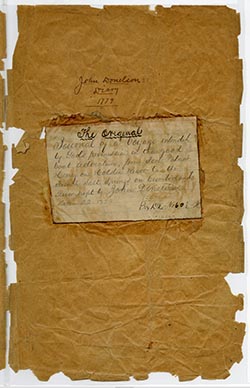 John Donelson
Diary
1779
The Original
Journal of a Voyage intended
by God's permission in the good
boat Adventure from Fort Patrick
Henry on Holston River to the
French Salt Springs on Cumberland
River kept by John Donelson